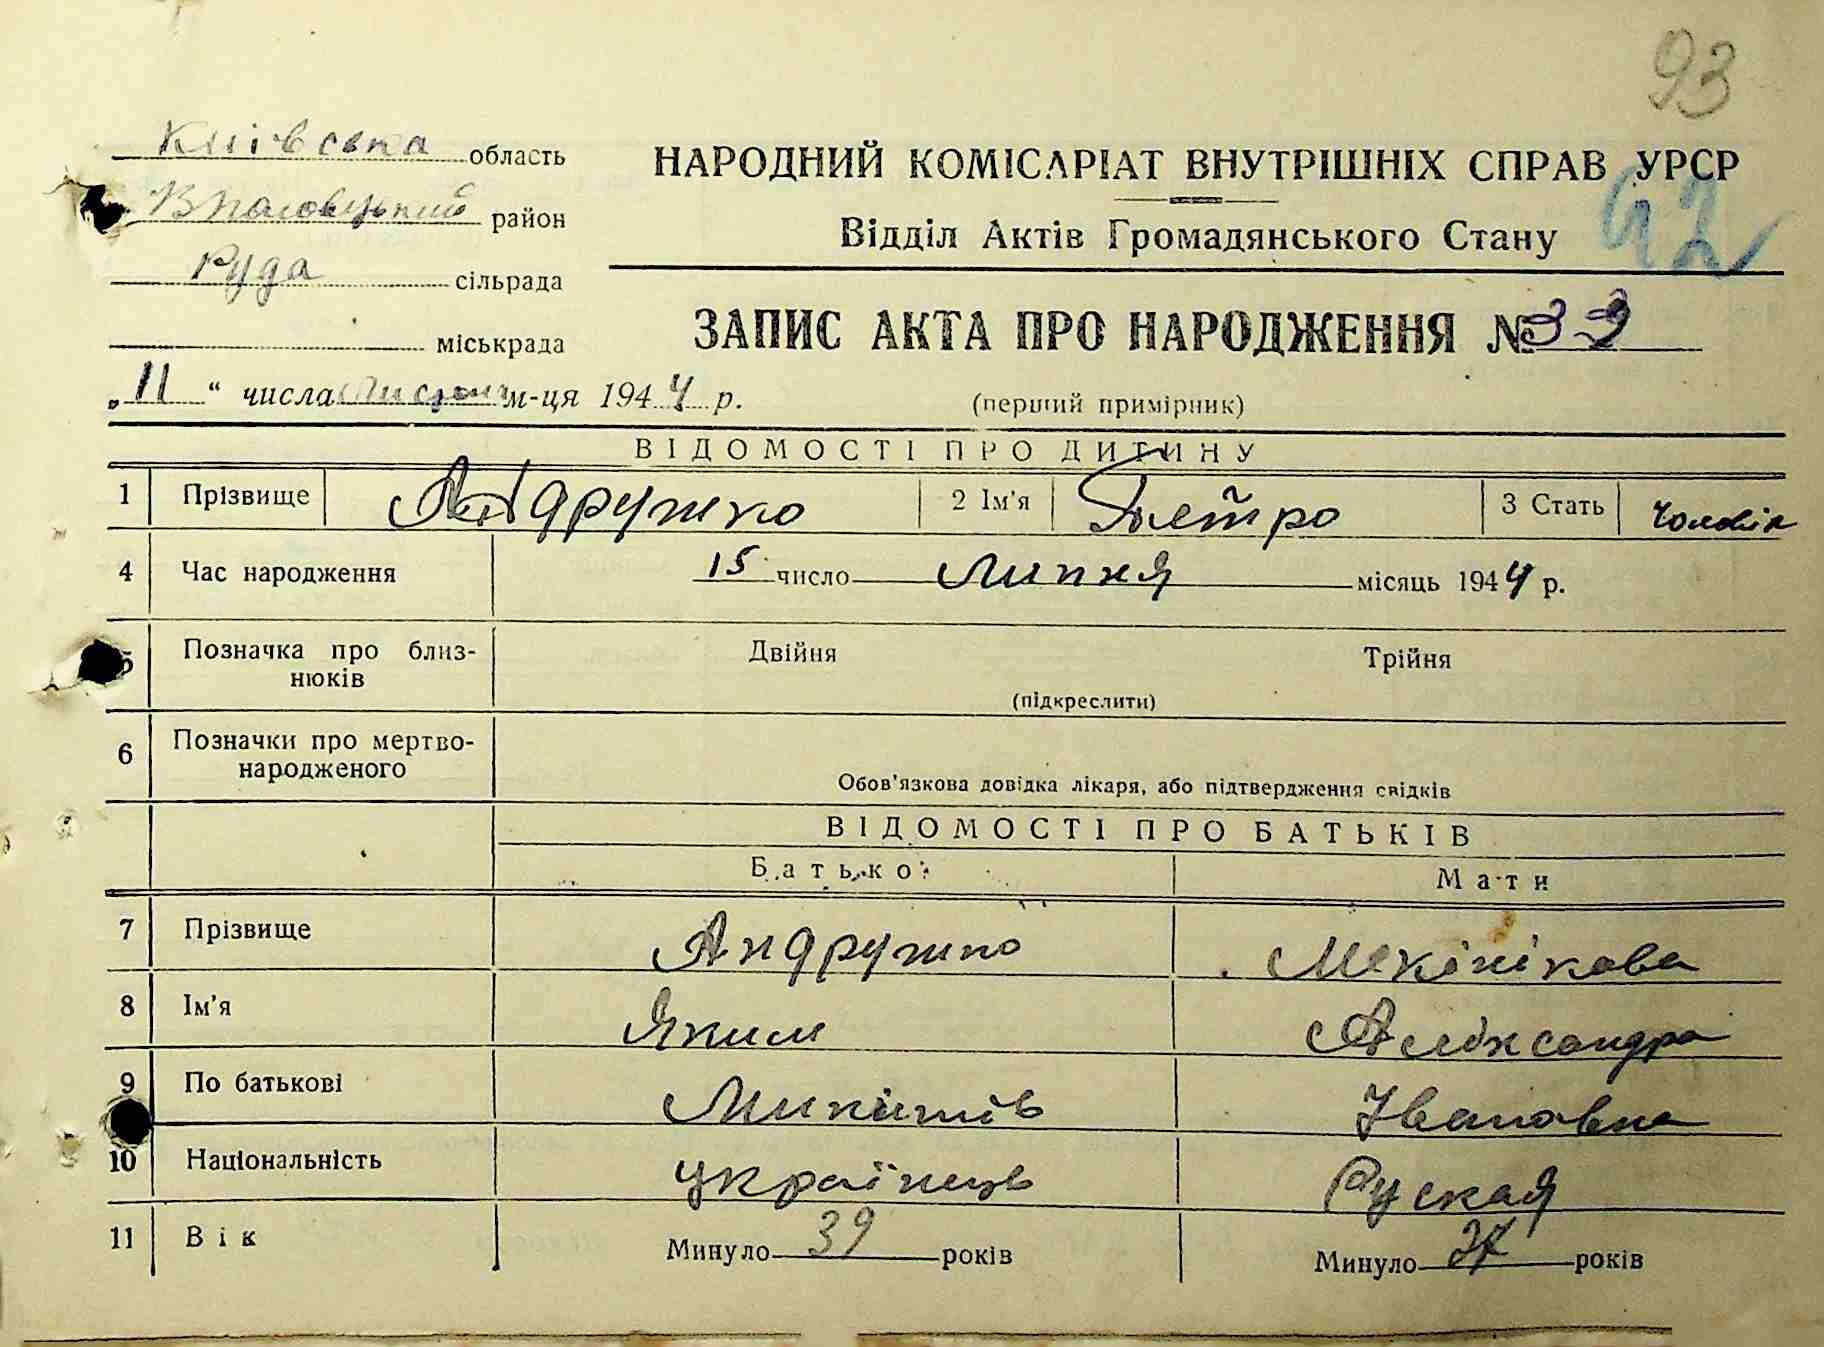 93
Київська область
НАРОДНИЙ КОМІСАРІАТ ВНУТРІШНІХ СПРАВ УРСР
район
42
Відділ Актів Громадянського Стану
Руда сільрада
ЗАПИС АКТА ПРО НАРОДЖЕННЯ № 33
міськрада
„11“ числа м-ця 1944 р.
(перший примірник)
ВІДОМОСТІ ПРО ДИТИНУ
1 Прізвище Андрушко 2 Ім'я Пьетро 3 Стать чоловік
4 Час народження 15 число Липня місяць 1944 р.
5 Позначка про близ- Двійня Трійня
нюків
(підкреслити)
6 Позначки про мертво-
народженого
Обов'язкова довідка лікаря, або підтвердження свідків
ВІДОМОСТІ ПРО БАТЬКІВ
Батько Мати
7 Прізвище Андрушко Мекінікова
8 Ім'я Яким Александра
9 По батькові Микитів Івановна
10 Національність українець Руская
11 Вік Минуло 39 років Минуло 37 років